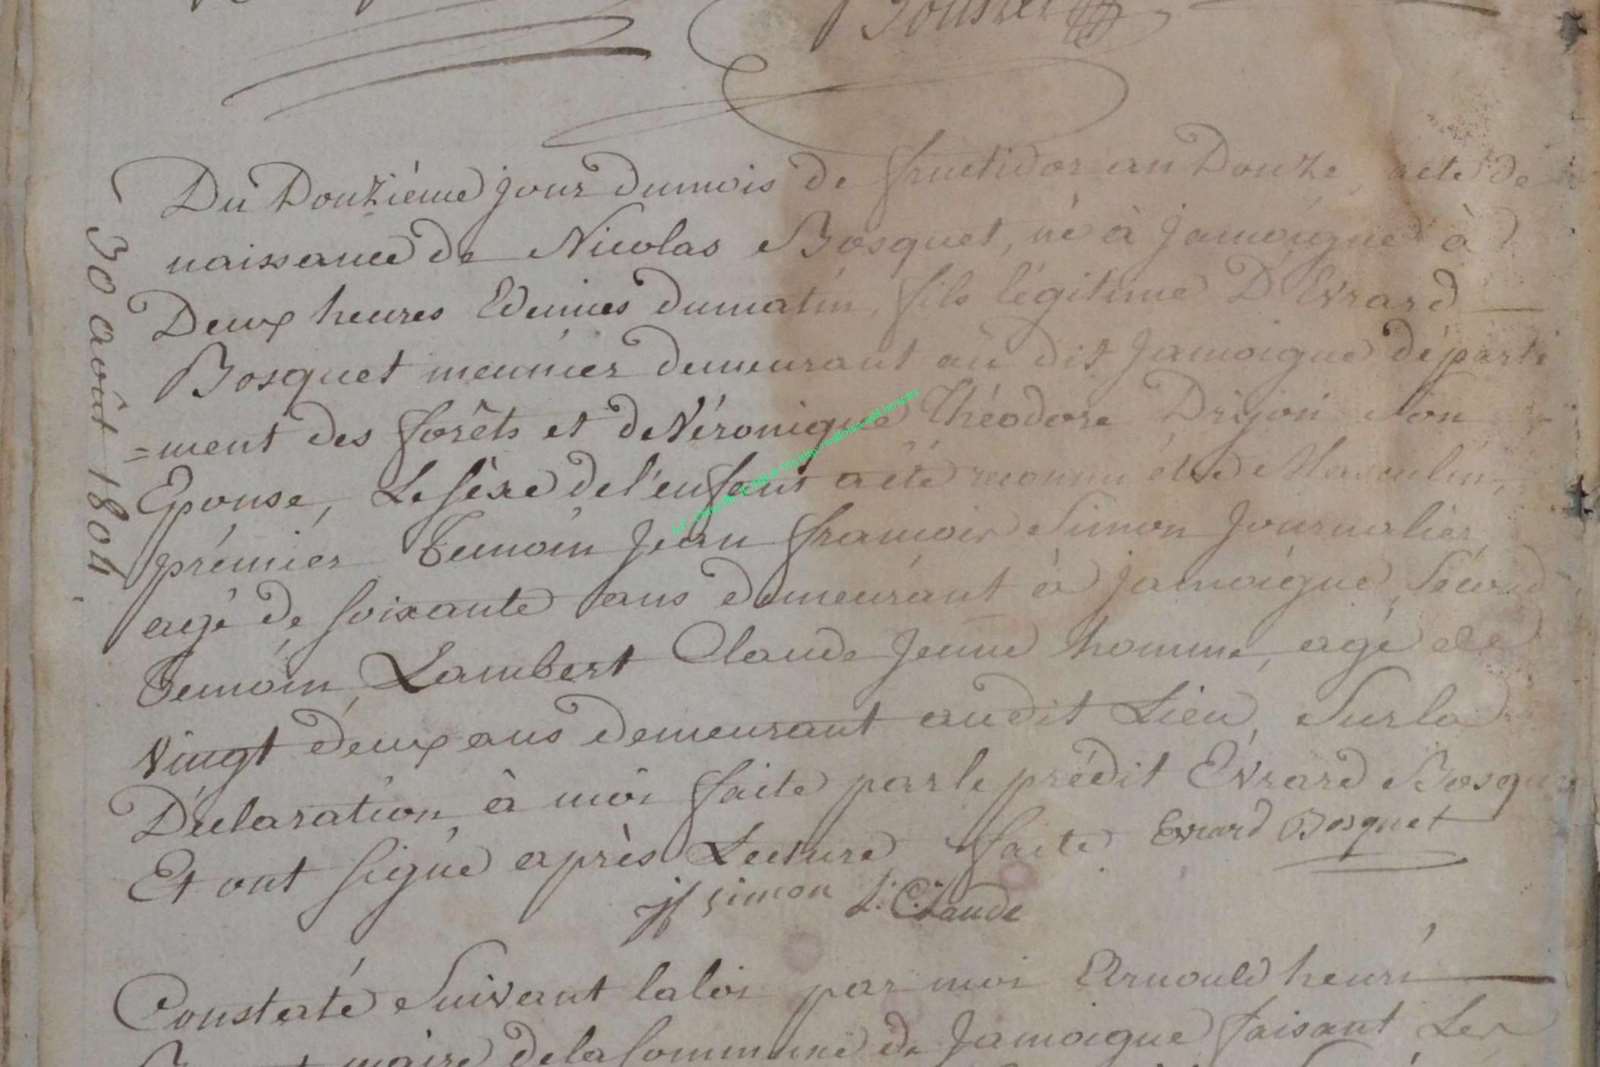 30 août 1804
Du Douzième jour du mois de fructidor an Douze, acte de
naissance de Nicolas Bosquet, né à Jamoigne à
Deux heures Edemies du matin, fils légitime D'Evrard
Bosquet meunier demeurant au dit Jamoigne départe
=ment des forêts et de Véronique Théodore Drijon Son
Epouse, Le sèxe de l'enfant a été reconnu être Masculin,
prémier Temoin Jean francois Simon Journalier,
agé de soixante ans demeurant à Jamoigne, Second
Temoin Lambert Claude Jeune homme, agé de
vingt deux ans demeurant audit Lieu, Sur la
Déclaration à moi faite par le prédit Evrard Bosquet
Et ont signé après Lecture faite Evrard Bosquet
jf simon L: Claude
Constaté Suivant la loi par moi Arnould henri
maire de la Commune de Jamoigne faisant Les